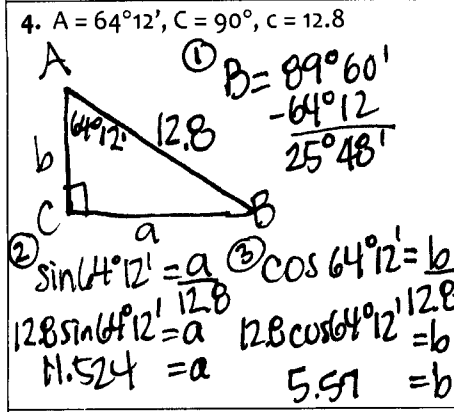 4. A = 64°12', C = 90°, c = 12.8
A
64°12'
12.8
b
C
a
B
① B = 89°60'
-64°12
25°48'
② sin 64°12' = a/12.8
12.8 sin 64°12' = a
11.524 = a
③ cos 64°12' = b/12.8
12.8 cos 64°12' = b
5.57 = b